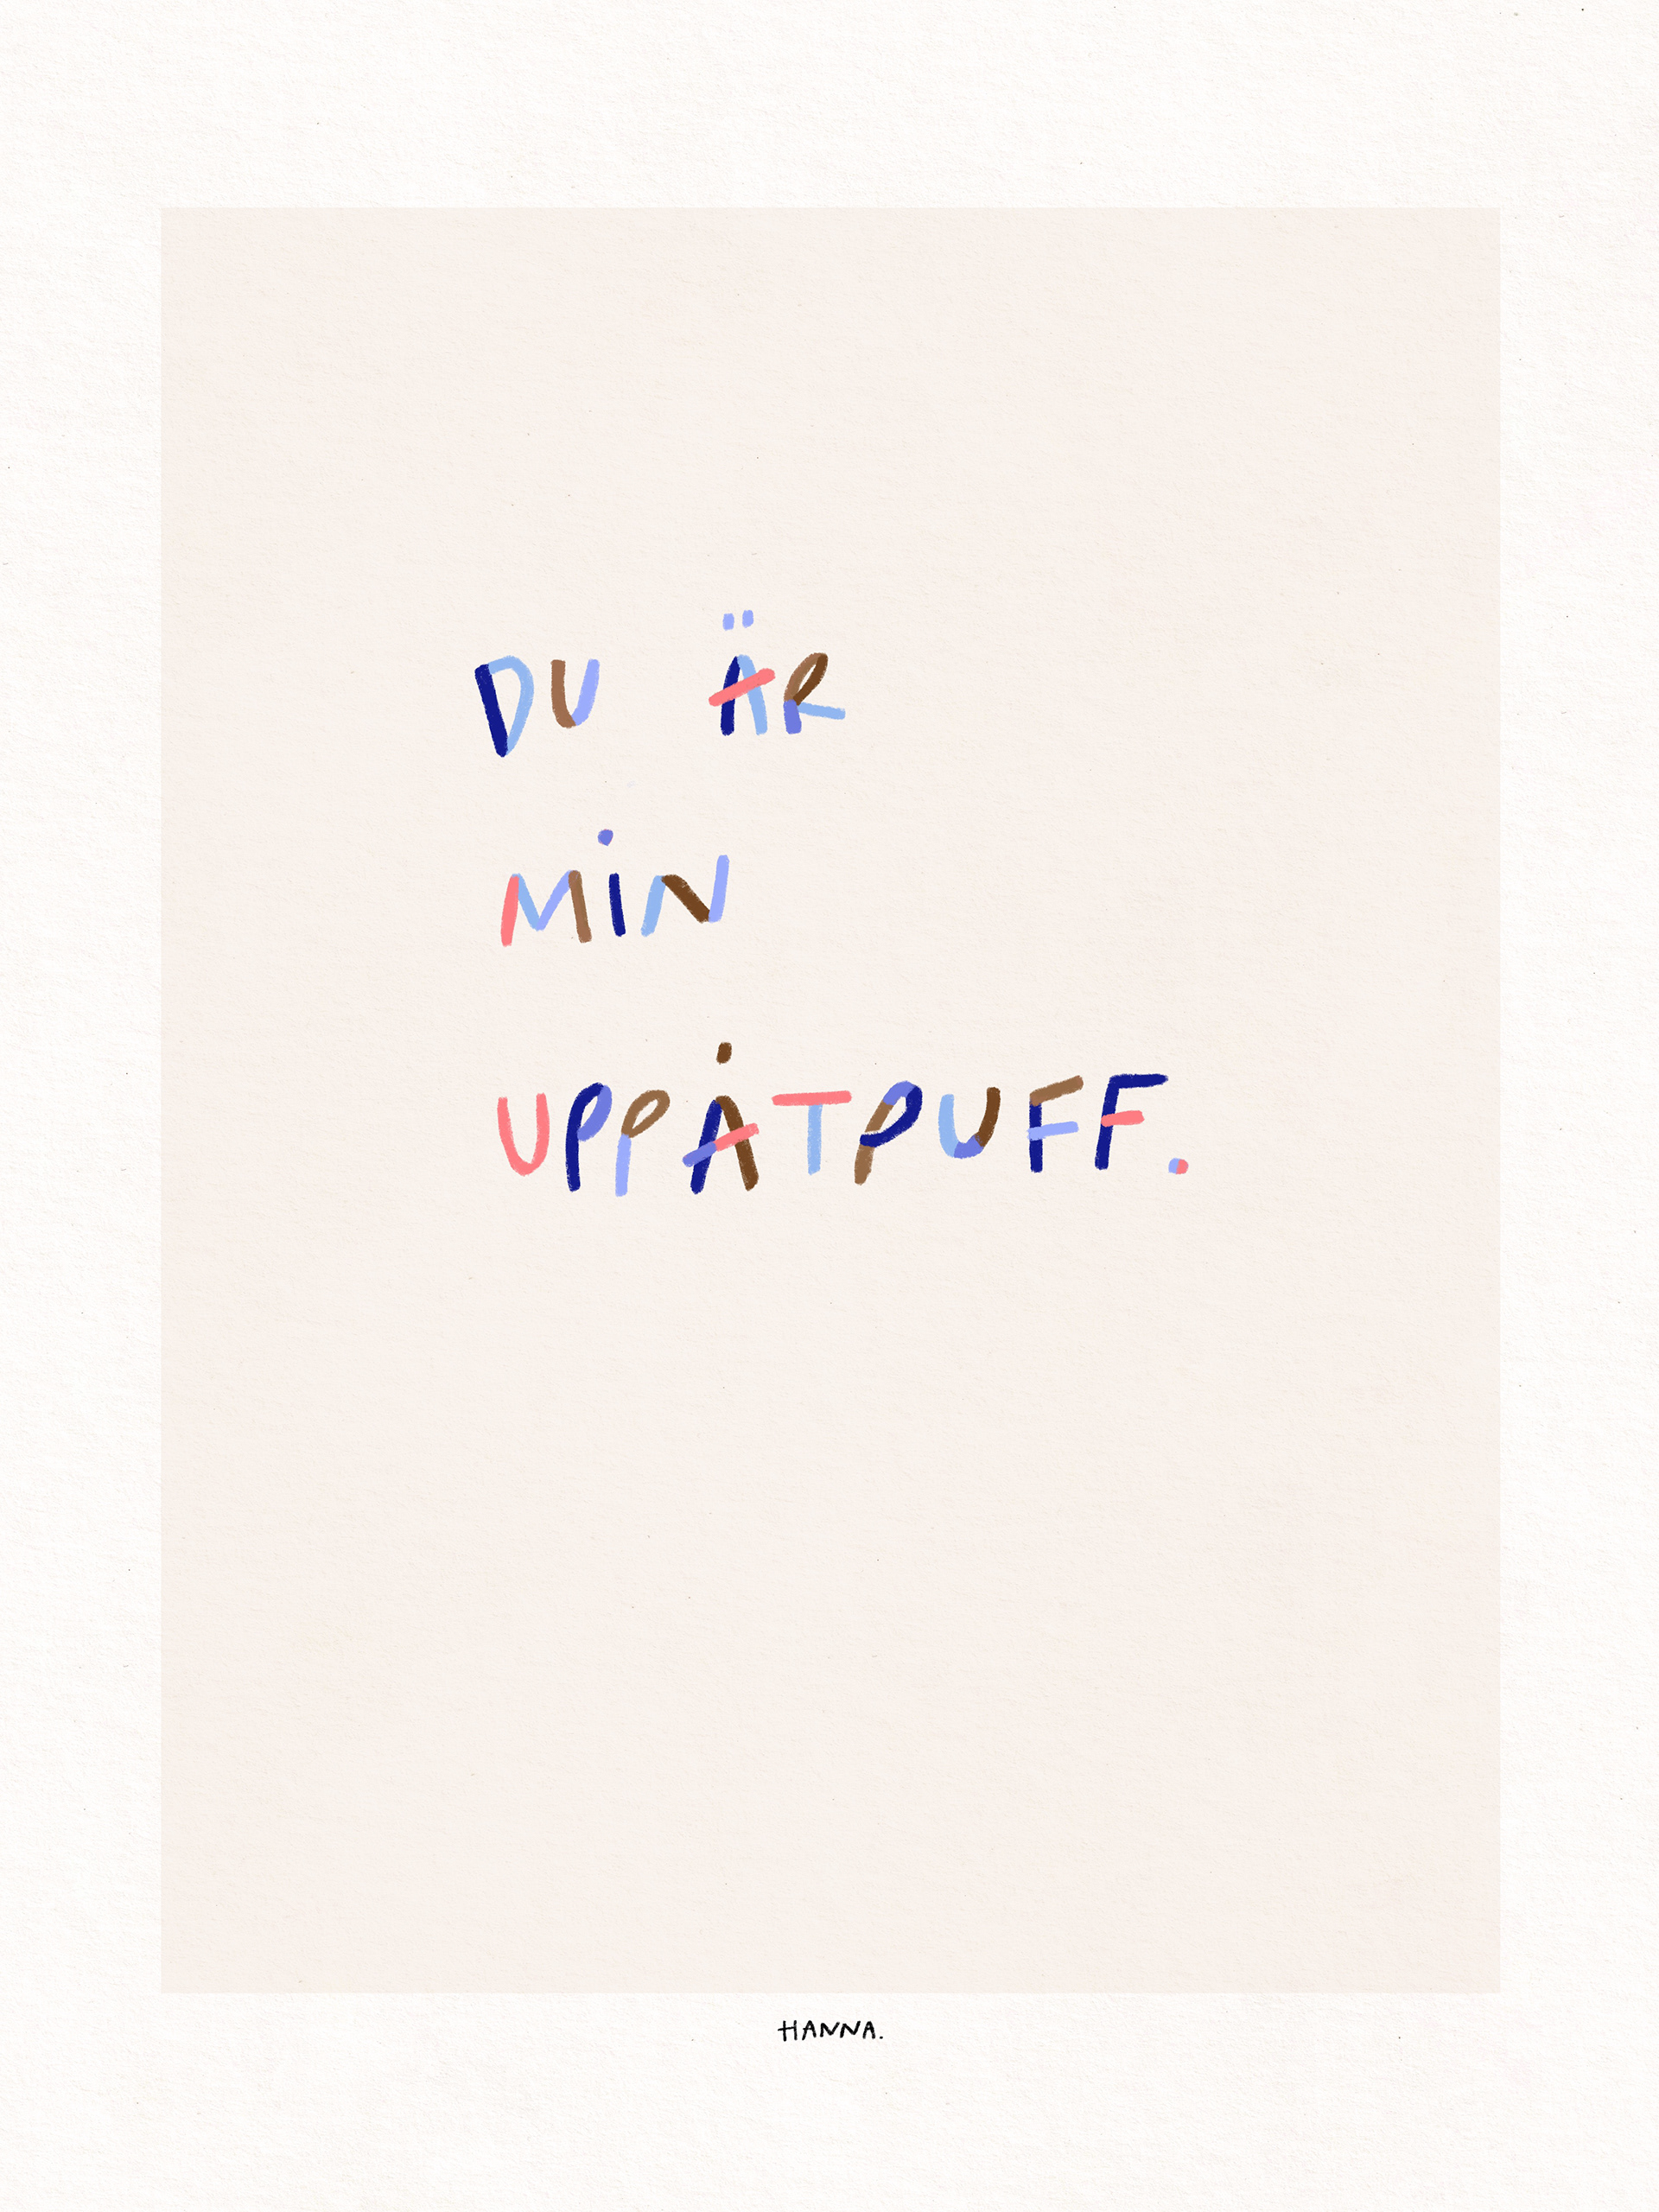 DU ÄR
MIN
UPPÅTPUFF.
HANNA.